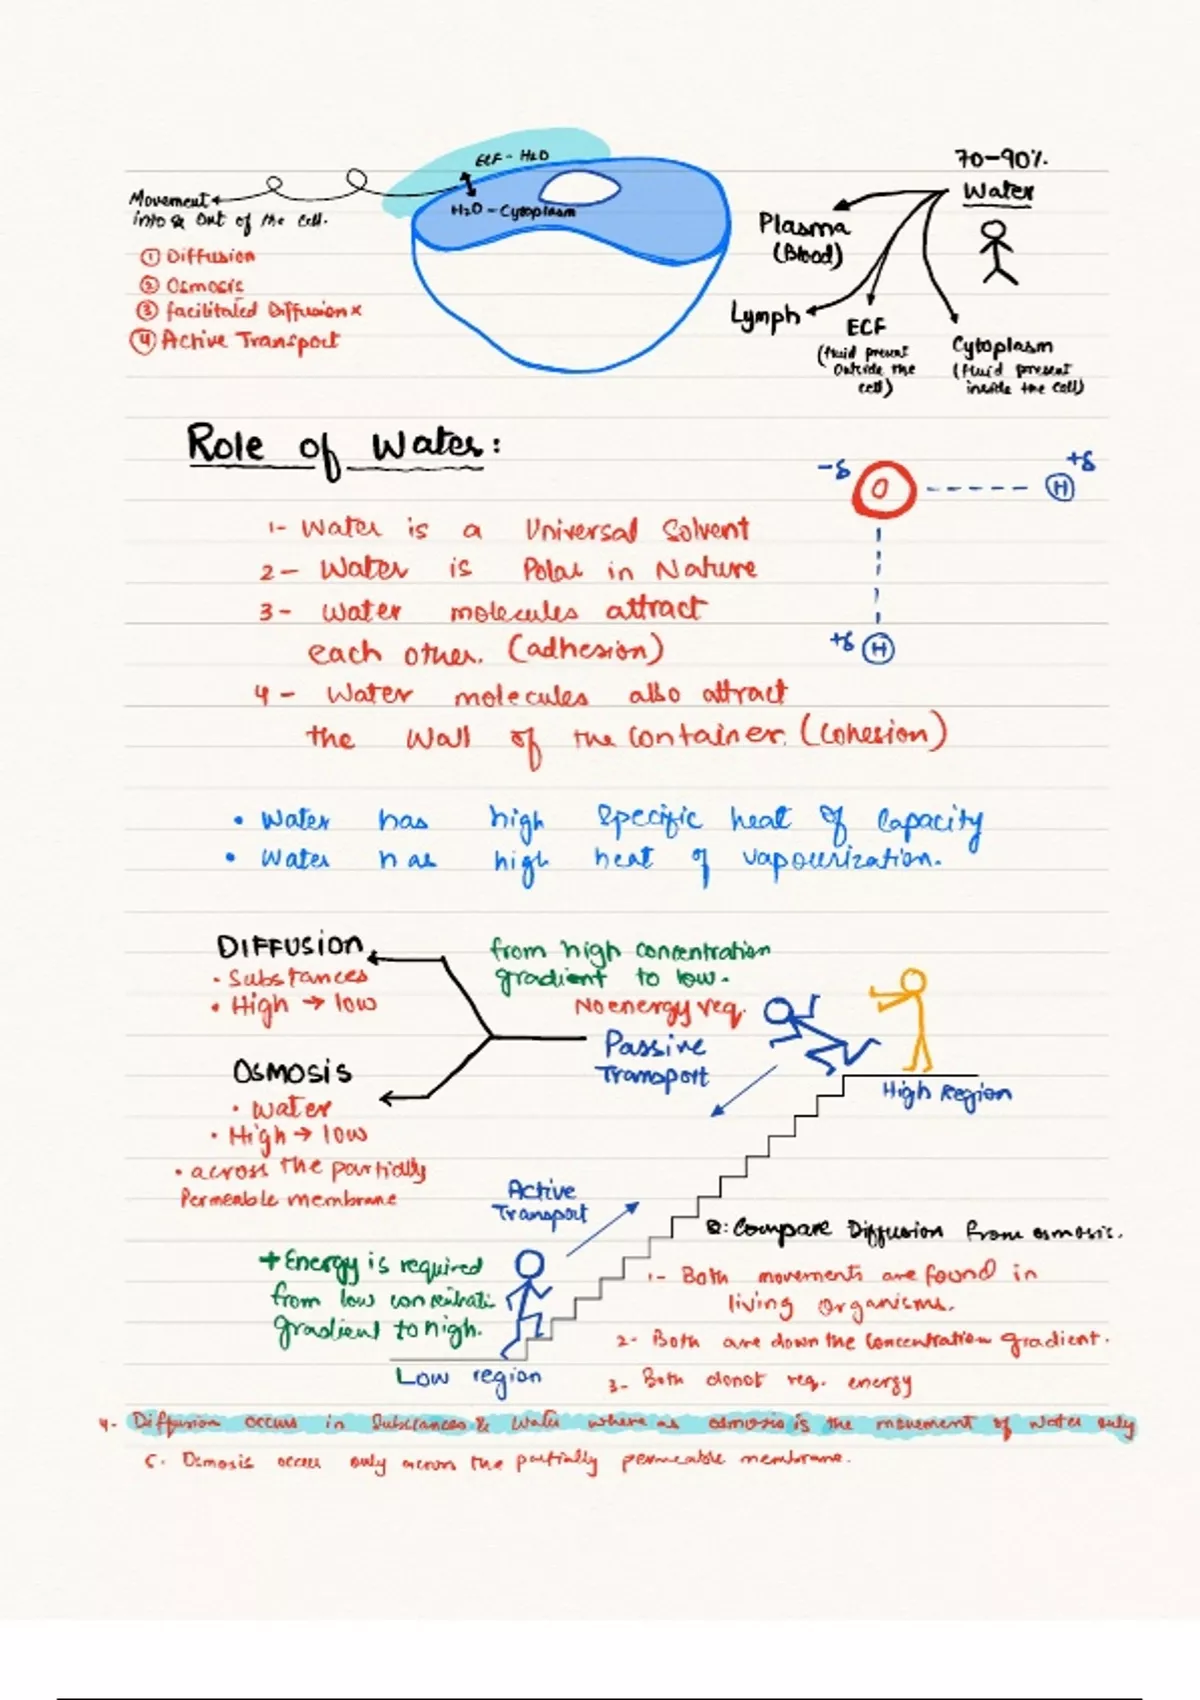 ECF - H2O
H2O - Cytoplasm
Movement
into & Out of the cell.
① Diffusion
② Osmosis
③ facilitated Diffusion x
④ Active Transport
70-90%.
Water
Plasma
(Blood)
Lymph
ECF
(fluid present
Outside the
cell)
Cytoplasm
(fluid present
inside the cell)
Role of Water:
-δ
O
H
+δ
+δ
H
1- Water is a Universal Solvent
2- Water is Polar in Nature
3- Water molecules attract
each other. (adhesion)
4- Water molecules also attract
the Wall of the Container. (Cohesion)
• Water has high Specific heat of Capacity
• Water has high heat of vapourization.
DIFFUSION
• Substances
• High → low
OSMOSIS
• Water
• High → low
• across the partially
Permeable membrane
from high concentration
gradient to low.
No energy req.
Passive
Transport
High Region
Active
Transport
+ Energy is required
from low concentrati
gradient to high.
Low region
Q: Compare Diffusion from osmosis.
1- Both movements are found in
living Organisms.
2- Both are down the Concentration gradient.
3- Both donot req. energy
4- Diffusion occurs in Substances & Water where as osmosis is the movement of water only
5. Osmosis occur only across the partially permeable membrane.